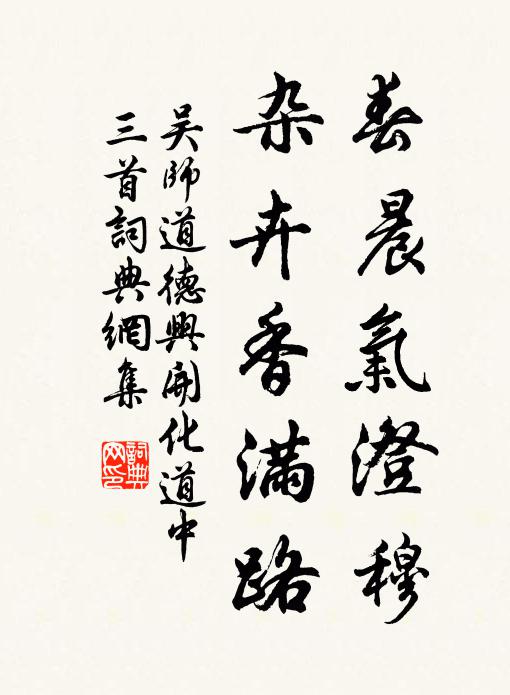 春晨氣澄穆
杂卉香满路
吴師道德興開化道中
三首詞典網集
詞典网印